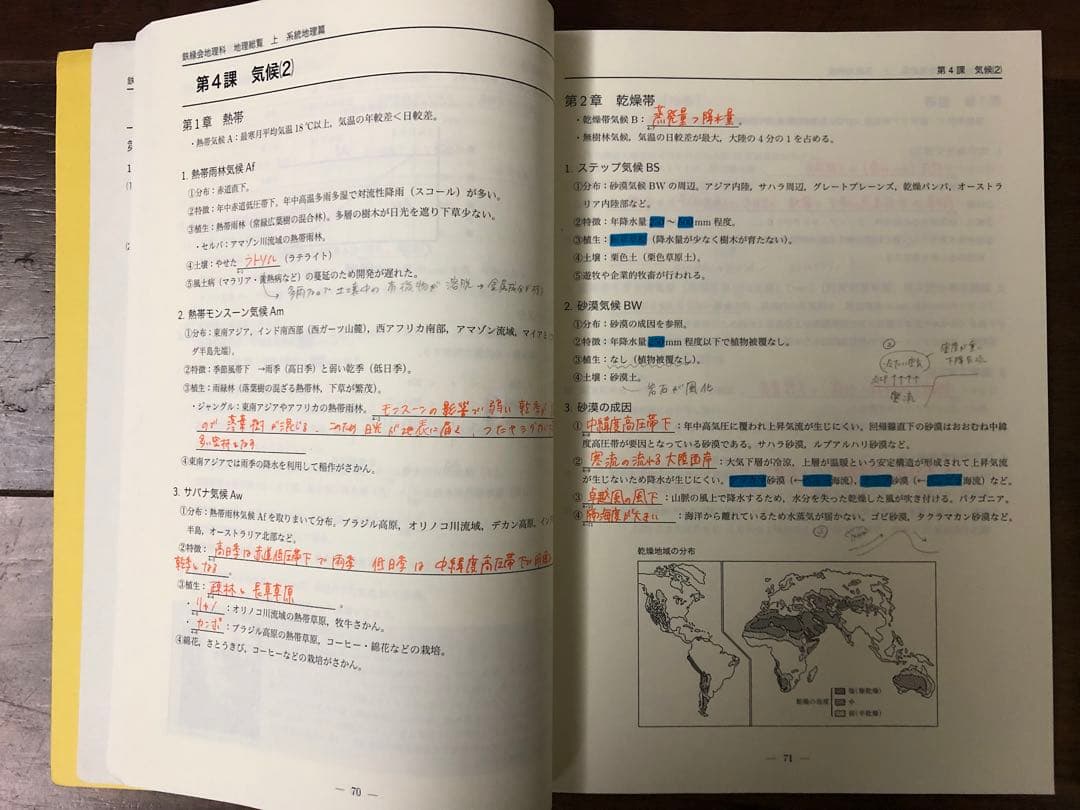 鉄緑会地理科 地理総覧 上 系統地理篇
第4課 気候(2)
第1章 熱帯
・熱帯気候A:最寒月平均気温18℃以上,気温の年較差<日較差。
1. 熱帯雨林気候Af
①分布:赤道直下。
②特徴:年中赤道低圧帯下,年中高温多雨多湿で対流性降雨(スコール)が多い。
③植生:熱帯雨林(常緑広葉樹の混合林)。多層の樹木が日光を遮り下草少ない。
・セルバ:アマゾン川流域の熱帯雨林。
④土壌:やせたラトソル(ラテライト)
⑤風土病(マラリア・黄熱病など)の蔓延のため開発が遅れた。
2. 熱帯モンスーン気候Am
①分布:東南アジア,インド南西部(西ガーツ山麓),西アフリカ南部,アマゾン流域,マイアミ
ダ半島先端)。
②特徴:季節風帯下→雨季(高日季)と弱い乾季(低日季)。
③植生:雨緑林(落葉樹の混ざる熱帯林,下草が繁茂)。
・ジャングル:東南アジアやアフリカの熱帯雨林。モンスーンの影響で弱い乾季が
ので落葉樹が混じる。このため日光が地表に届く,
④東南アジアでは雨季の降水を利用して稲作がさかん。
3. サバナ気候Aw
①分布:熱帯雨林気候Afを取りまいて分布。ブラジル高原,オリノコ川流域,デカン高原,イン
半島,オーストラリア北部など。
②特徴:高日季は赤道低圧帯下で雨季 低日季は中緯度高圧帯下
乾季となる。
③植生:疎林と長草草原。
・リャノ:オリノコ川流域の熱帯草原,牧牛さかん。
・カンポ:ブラジル高原の熱帯草原,コーヒー・綿花などの栽培。
④綿花,さとうきび,コーヒーなどの栽培がさかん。
— 70 —
第4課 気候(2)
第2章 乾燥帯
・乾燥帯気候B:蒸発量>降水量。
・無樹林気候,気温の日較差が最大,大陸の4分の1を占める。
1. ステップ気候BS
①分布:砂漠気候BWの周辺。アジア内陸,サハラ周辺,グレートプレーンズ,乾燥パンパ,オーストラ
リア内陸部など。
②特徴:年降水量250〜500mm程度。
③植生:(降水量が少なく樹木が育たない)。
④土壌:栗色土(栗色草原土)。
⑤遊牧や企業的牧畜が行われる。
2. 砂漠気候BW
①分布:砂漠の成因を参照。
②特徴:年降水量mm程度以下で植物被覆なし。
③植生:なし(植物被覆なし)。
④土壌:砂漠土。岩石が風化
3. 砂漠の成因
①中緯度高圧帯下:年中高気圧に覆われ上昇気流が生じにくい。回帰線直下の砂漠はおおむね中緯
度高圧帯が要因となっている砂漠である。サハラ砂漠,ルブアルハリ砂漠など。
②寒流の流れる大陸西岸:大気下層が冷涼,上層が温暖という安定構造が形成されて上昇気流
が生じないため降水が生じにくい。砂漠(←海流),砂漠(←海流)など。
③卓越風の風下:山脈の風上で降水するため,水分を失った乾燥した風が吹き付ける。パタゴニア。
④隔海度が大きい:海洋から離れているため水蒸気が届かない。ゴビ砂漠,タクラマカン砂漠など。
乾燥地域の分布
乾燥の強度
強(極乾燥)
中
弱(半乾燥)
— 71 —